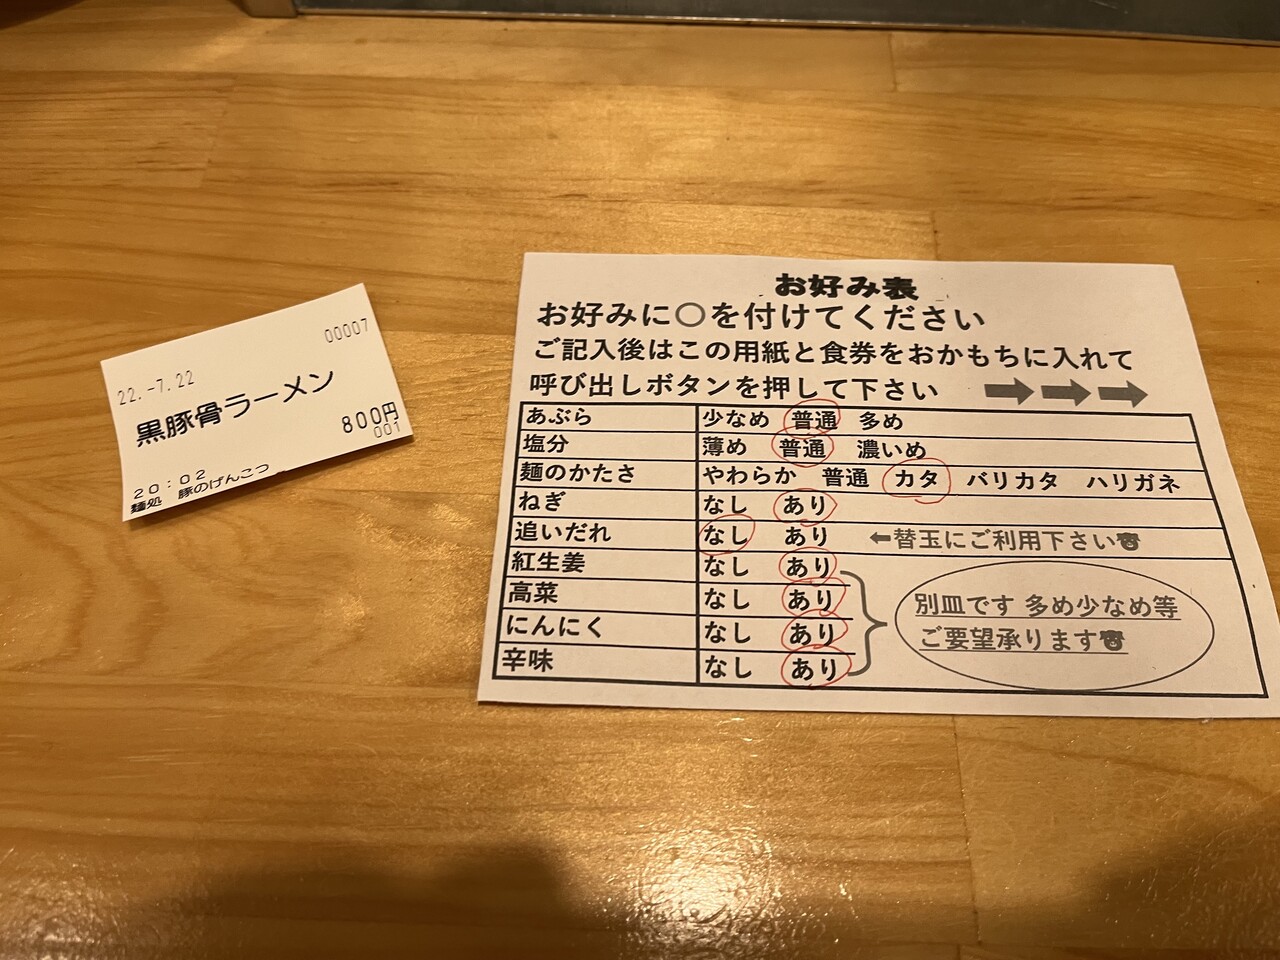 00007
22.-7.22
黒豚骨ラーメン
800円
001
20:02
麺処 豚のげんこつ
お好み表
お好みに○を付けてください
ご記入後はこの用紙と食券をおかもちに入れて
呼び出しボタンを押して下さい
あぶら 少なめ 普通 多め
塩分 薄め 普通 濃いめ
麺のかたさ やわらか 普通 カタ バリカタ ハリガネ
ねぎ なし あり
追いだれ なし あり ←替玉にご利用下さい
紅生姜 なし あり
高菜 なし あり
にんにく なし あり
辛味 なし あり
別皿です 多め少なめ等
ご要望承ります